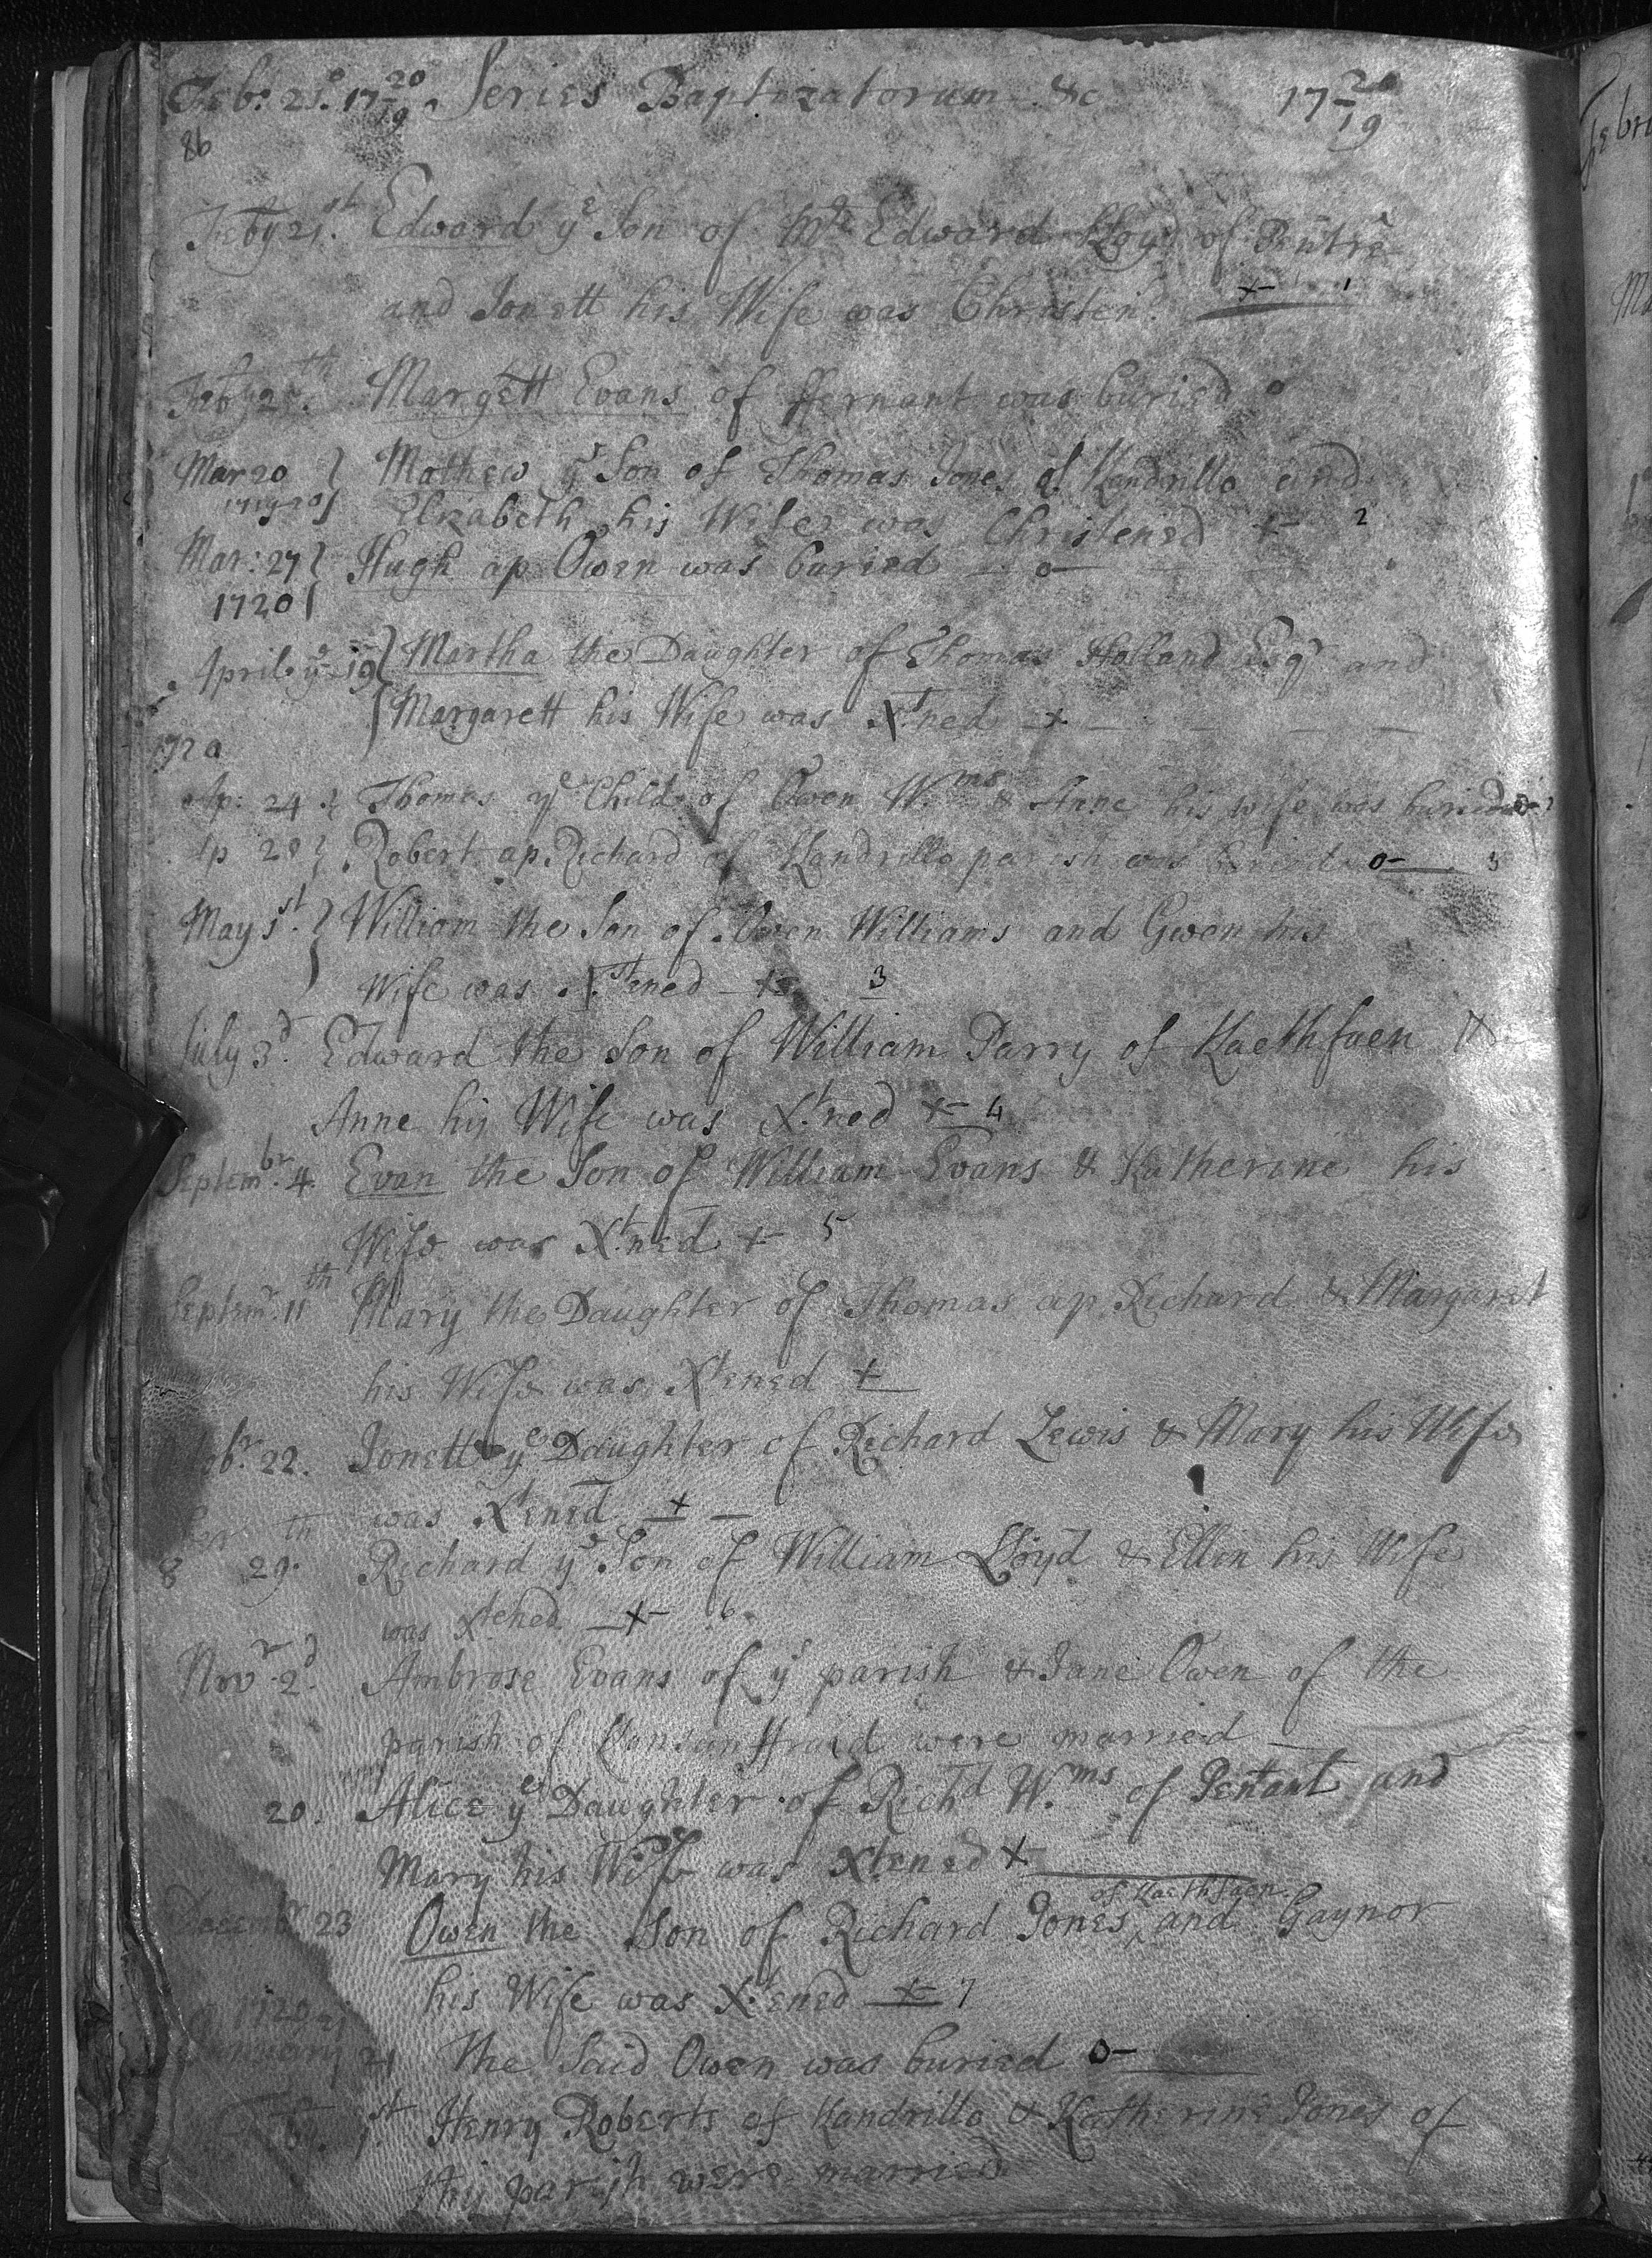 Feb: 21. 17 20/19. Series Baptizatorum &c 17 20/19
86
Feby 21st. Edward ye Son of Mr Edward Lloyd of Pentre
and Jonett his Wife was Christen'd x- 1
Feby 25th. Margett Evans of ffernant was buried o
Mar 20 } Mathew ye Son of Thomas Jones of Llandrillo and
1719-20 } Elizabeth his Wife was Christened x- 2
Mar: 27 } Hugh ap Owen was buried - o-
1720 }
April ye 19 { Martha the Daughter of Thomas Holland Esqr and
{ Margarett his Wife was Xt'ned -x-
1720
Ap: 24 } Thomas ye Child of Owen Wms & Anne his wife was buried
Ap 28 } Robert ap Richard of Llandrillo parish was buried o- 3
May 1st. } William the Son of Owen Williams and Gwen his
Wife was Xstened - x- 3
July 3d. Edward the Son of William Parry of Llaethfaen &
Anne his Wife was Xt'ned x- 4
Septembr. 4. Evan the Son of William Evans & Katherine his
Wife was Xt'ned x- 5
Septemr. 11th Mary the Daughter of Thomas ap Richard & Margaret
his Wife was Xtened x
22. Jonett ye Daughter of Richard Lewis & Mary his Wife
was Xtened -x-
8 29th. Richard ye Son of William Lloyd & Ellin his Wife
was Xtened -x- 6
Novr. 2d. Ambrose Evans of ys parish & Jane Owen of the
parish of Llansanffraid were married -
20. Alice ye Daughter of Richd Wms of Pentant and
Mary his Wife was Xtened x
Decembr 23 Owen the Son of Richard Jones ^ of Llaethfaen and Gaynor
his Wife was Xtened -x- 7
1720/21
January } 21 The Said Owen was buried o-
Feby. 1st Henry Roberts of Llandrillo & Katherine Jones of
this parish were married